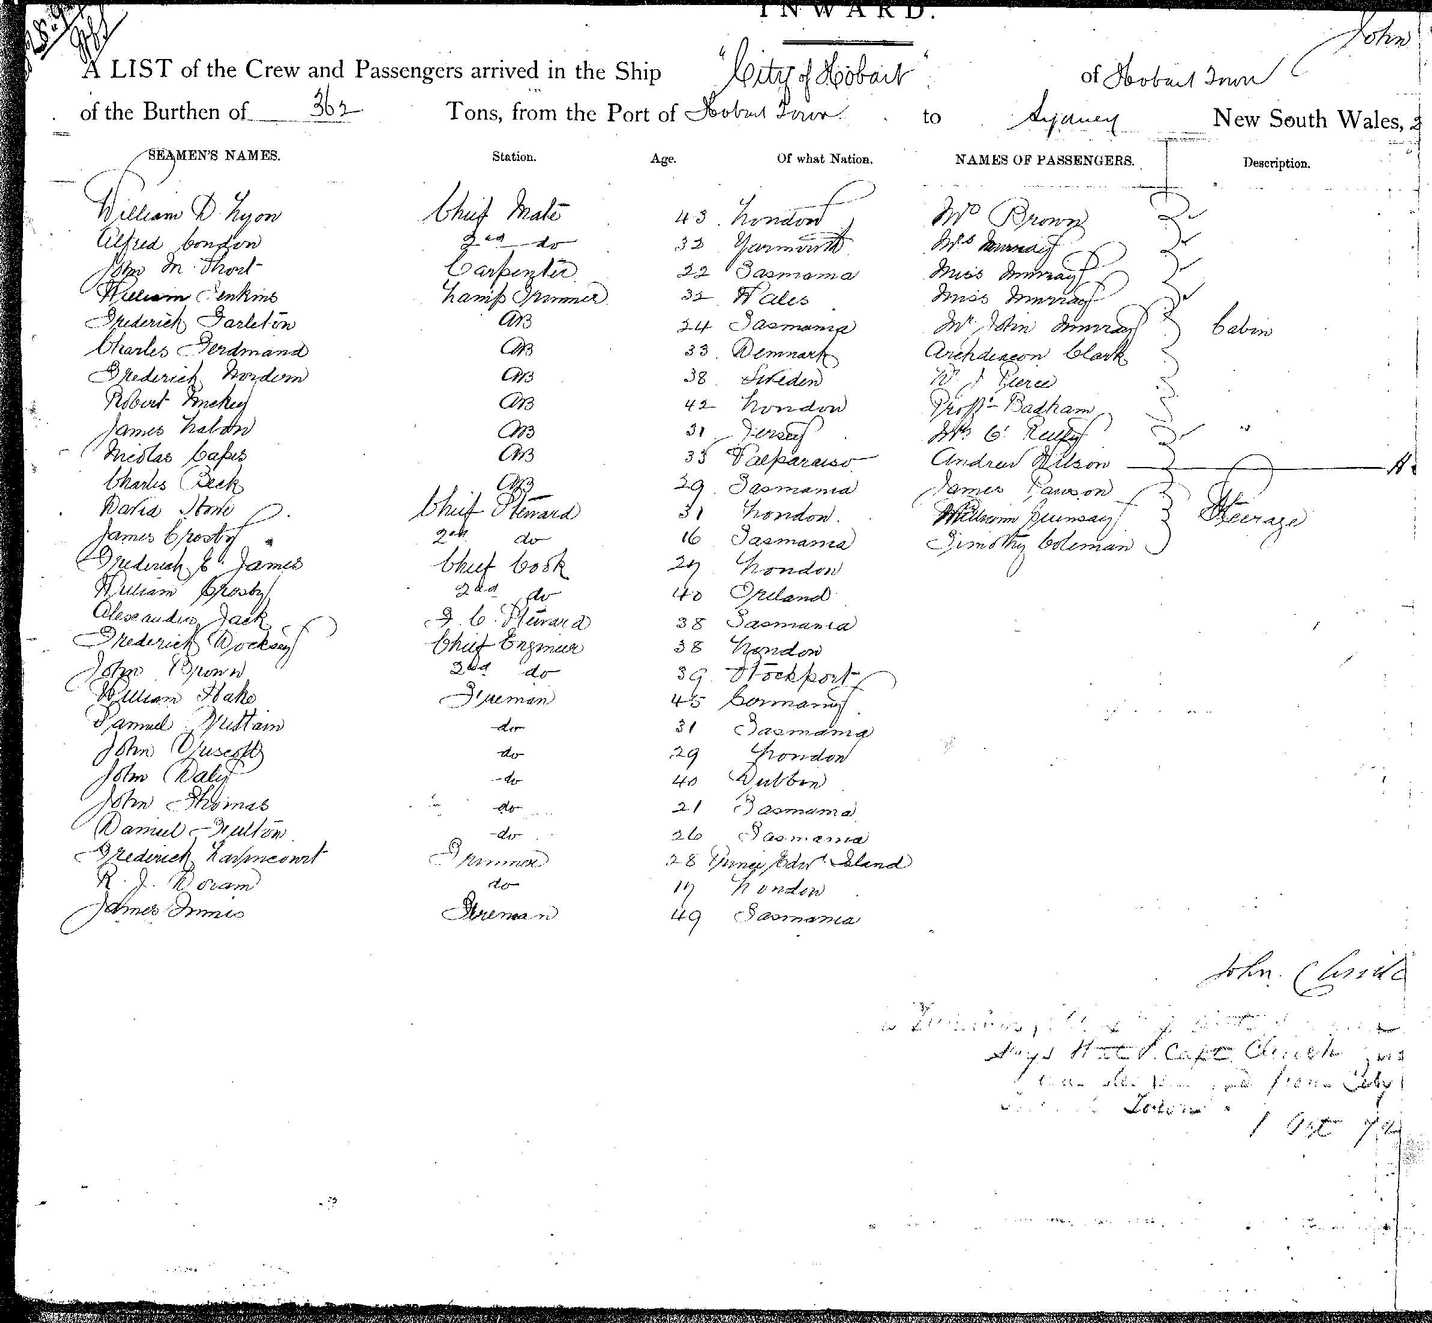 INWARD.
John
A LIST of the Crew and Passengers arrived in the Ship "City of Hobart" of Hobart Town
of the Burthen of 362 Tons, from the Port of Hobart Town to Sydney New South Wales, 2
SEAMEN'S NAMES. Station. Age. Of what Nation. NAMES OF PASSENGERS. Description.
William D. Lyon Chief Mate 43 London Mrs Brown
Alfred Condon 2nd do 32 Yarmouth Mrs Murray
John M. Short Carpenter 22 Tasmania Miss Murray
William Jenkins Lamp Trimmer 32 Wales Miss Murray
Frederick Tarleton AB 24 Tasmania Mr John Murray Cabin
Charles Ferdinand AB 33 Denmark Archdeacon Clark
Frederick AB 38 Sweden J Pierce
Robert AB 42 London Profr Badham
James AB 31 Jersey Mrs O'Reilly "
Nicolas Capes AB 33 Valparaiso Andrew Wilson
Charles Beck AB 29 Tasmania James Pawson
David Chief Steward 31 London William Steerage
James Crosby 2nd do 16 Tasmania Timothy Coleman
Frederick E. James Chief Cook 27 London
William Crosby 2nd do 40 Ireland
Alexander Jack F. C. Steward 38 Tasmania
Frederick Docksey Chief Engineer 38 London
John Brown 2nd do 39 Stockport
William Hake Fireman 45 Germany
Samuel Brittain do 31 Tasmania
John Driscoll do 29 London
John Daly do 40 Dublin
John Thomas do 21 Tasmania
Daniel Fulton do 26 Tasmania
Frederick Trimmer 28 Prince Edwd Island
R. J. Doram do 17 London
James Innis Fireman 49 Tasmania
John Clinch
says that Capt Clinch
from City
Town
1 Oct 72